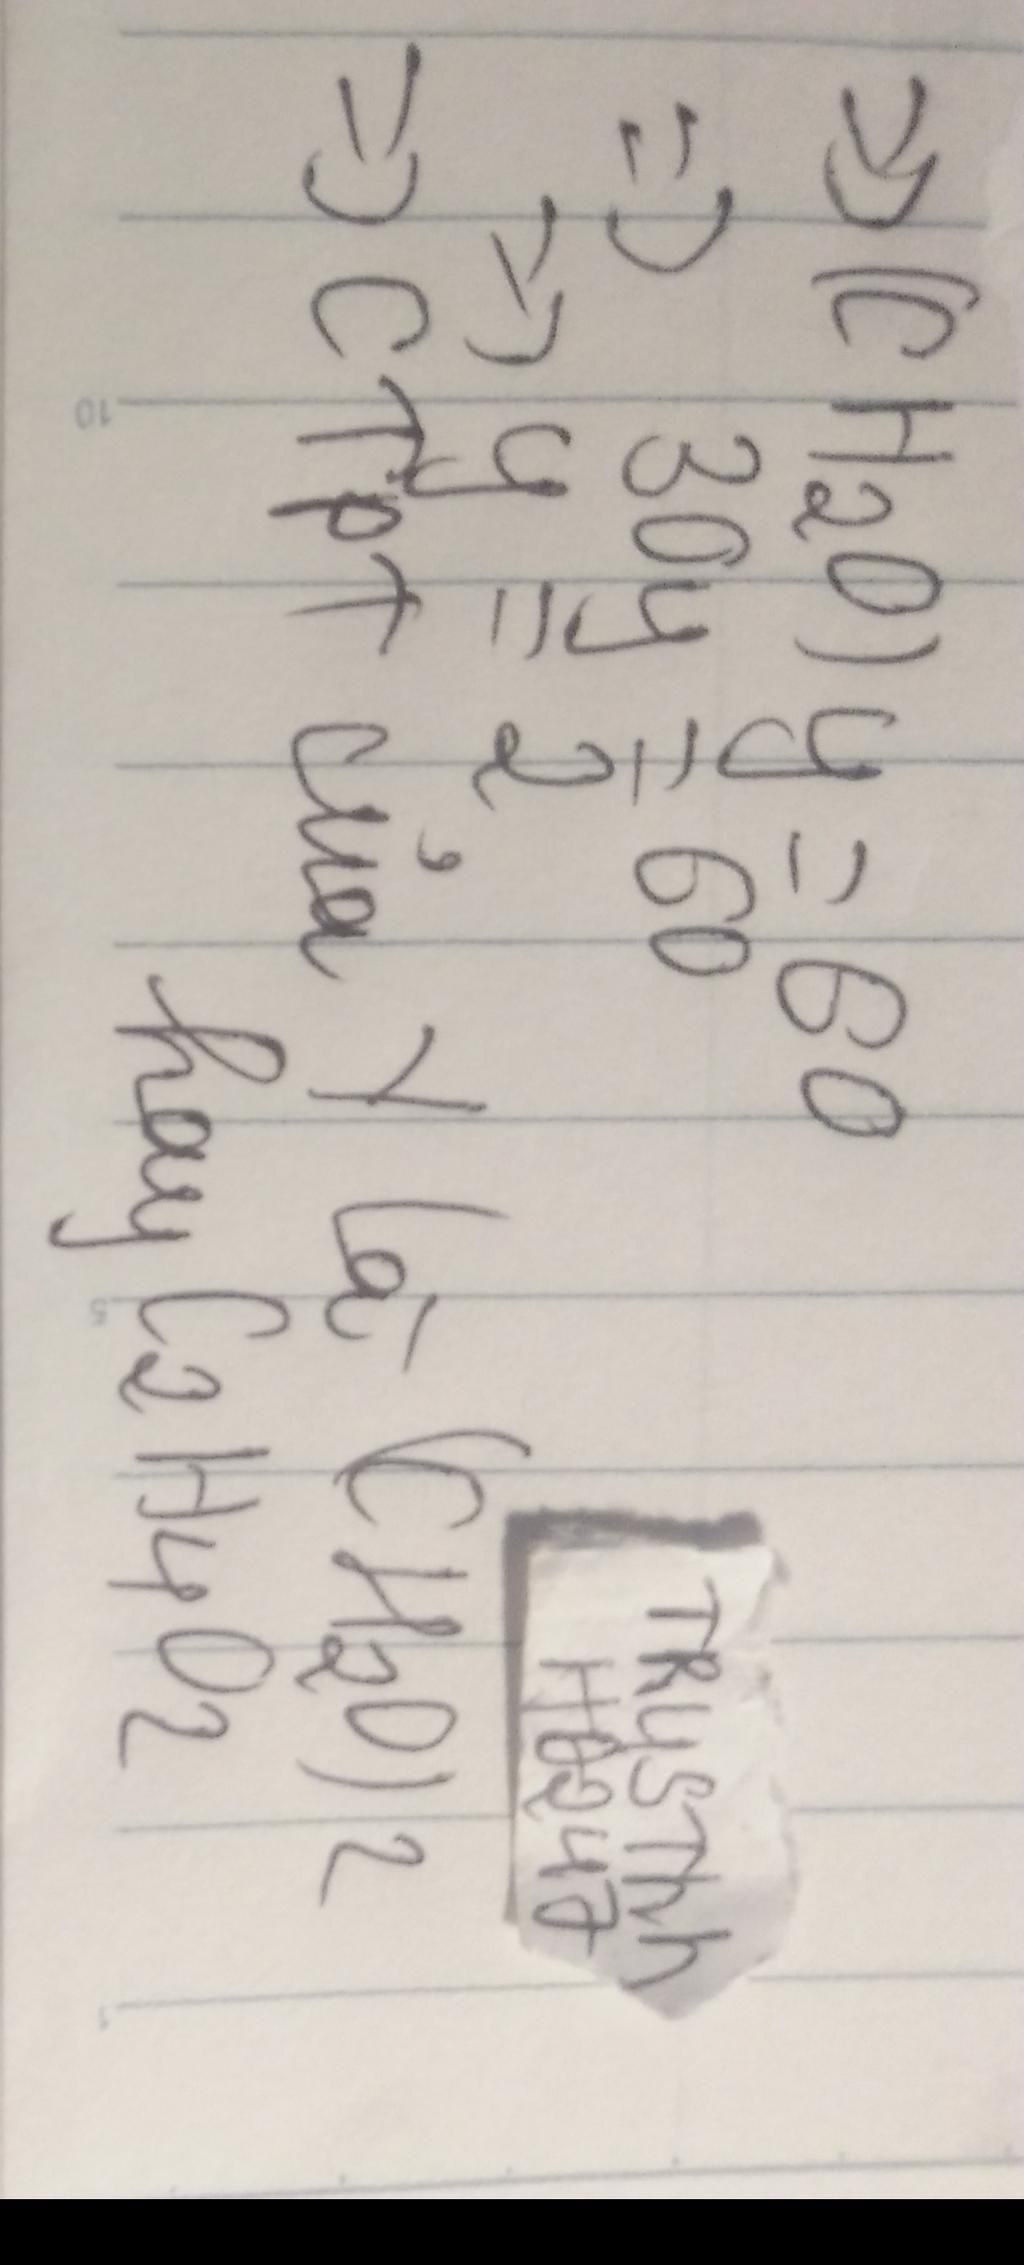 => (CH2O)y = 60
=> 30y = 60
=> y = 2
=> CTPT của Y là (CH2O)2
hay C2H4O2
TRYSThh
HB247
10
5
1